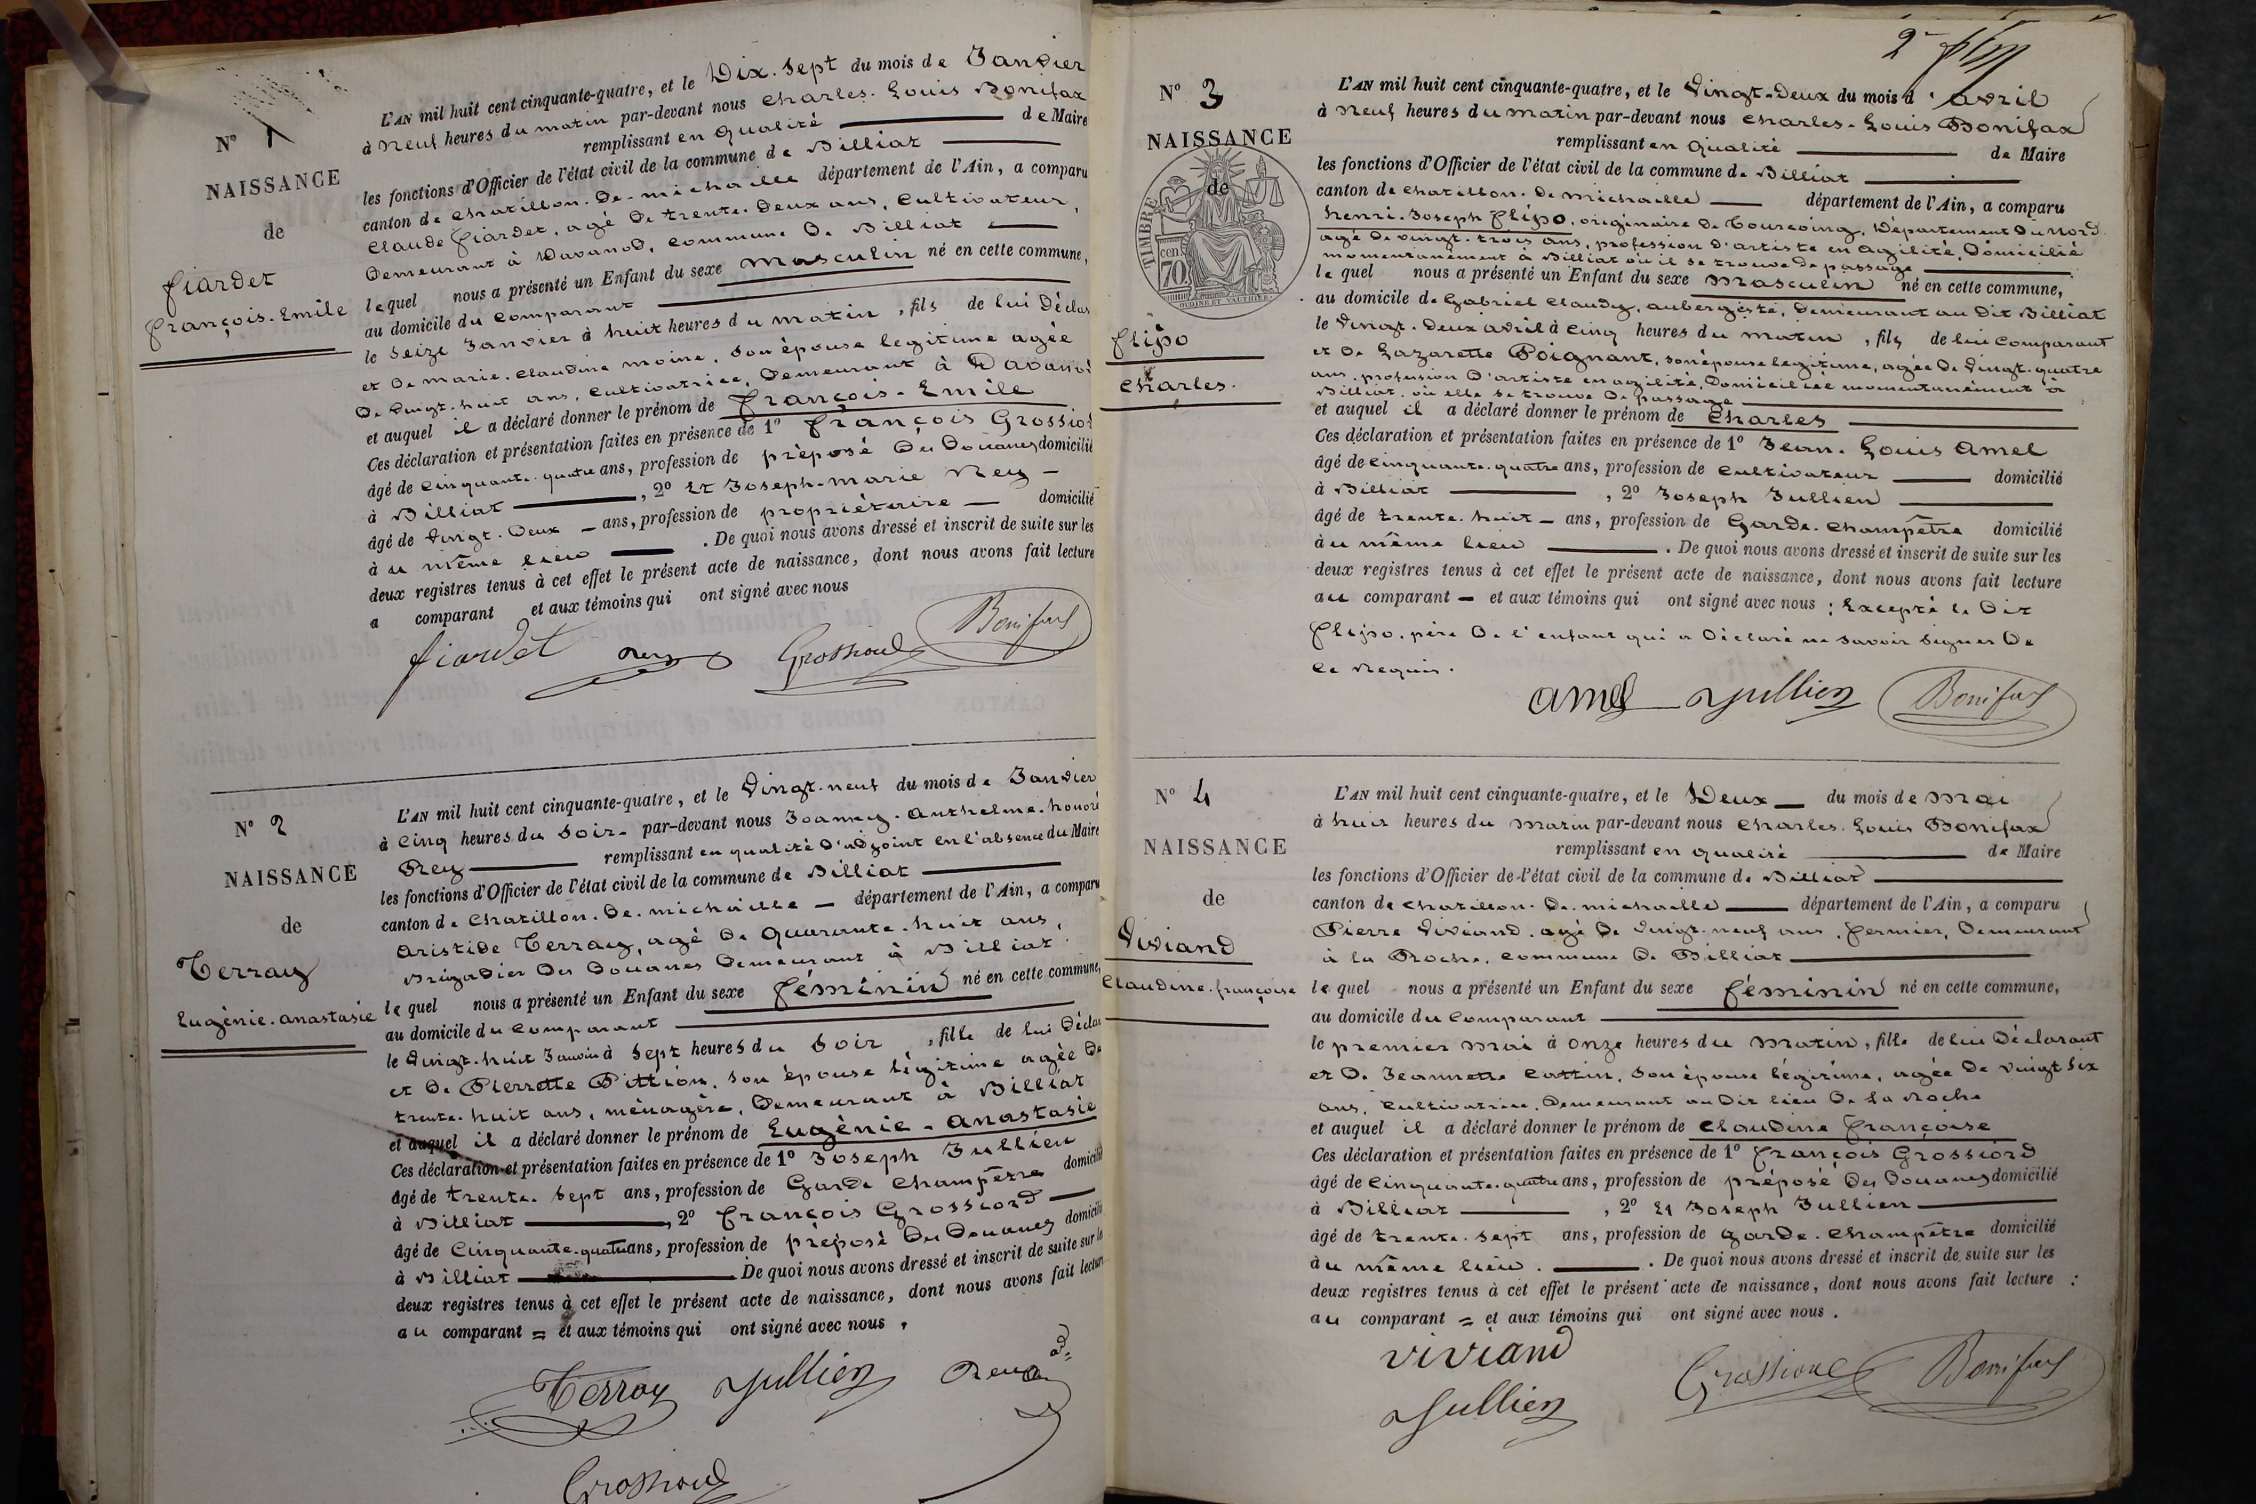 N° 1
NAISSANCE
de
fiardet
françois-Emile
L'AN mil huit cent cinquante-quatre, et le Dix-Sept du mois de Janvier
à Neuf heures du matin par-devant nous Charles-Louis Bonifax
remplissant en Qualité de Maire
les fonctions d'Officier de l'état civil de la commune de Billiat
canton de Chatillon-De-michaille département de l'Ain, a comparu
Claude fiardet, agé De trente-Deux ans, Cultivateur,
Demeurant à Davanod, Commune De Billiat
lequel nous a présenté un Enfant du sexe masculin né en cette commune,
au domicile du Comparant
le Seize Janvier à huit heures du matin, fils de lui Déclar
et De marie-Claudine moine, Son épouse legitime agée
De Vingt-huit ans, Cultivatrice, Demeurant à Davanod
et auquel il a déclaré donner le prénom de françois-Emile
Ces déclaration et présentation faites en présence de 1° françois Grossiord
âgé de Cinquante-quatre ans, profession de préposé Des Douanes domicilié
à Billiat, 2° Et Joseph-marie Rey
âgé de Vingt-Deux ans, profession de propriétaire domicilié
à u même lieu. De quoi nous avons dressé et inscrit de suite sur les
deux registres tenus à cet effet le présent acte de naissance, dont nous avons fait lecture
a comparant et aux témoins qui ont signé avec nous
fiardet Rey Grossiord Bonifax
N° 2
NAISSANCE
de
Terray
Eugènie-anastasie
L'AN mil huit cent cinquante-quatre, et le Vingt-neuf du mois de Janvier
à Cinq heures du Soir par-devant nous Joanny-Anthelme-honoré
Rey remplissant en qualité D'adjoint en l'absence du Maire
les fonctions d'Officier de l'état civil de la commune de Billiat
canton de Chatillon-De-michaille département de l'Ain, a comparu
Aristide Terray, agé De Quarante-huit ans,
Brigadier Des Douanes Demeurant à Billiat.
lequel nous a présenté un Enfant du sexe féminin né en cette commune,
au domicile du Comparant
le Vingt-huit Janvier à Sept heures du Soir, fille de lui Déclar
et De Pierrette Pittion, Son épouse légitime agée De
trente-huit ans, ménagère, Demeurant à Billiat
et auquel il a déclaré donner le prénom de Eugènie-Anastasie
Ces déclaration et présentation faites en présence de 1° Joseph Jullien
âgé de trente-Sept ans, profession de Garde Champêtre domicilié
à Billiat, 2° françois Grossiord
âgé de Cinquante-quatre ans, profession de préposé Des Douanes domicilié
à Billiat De quoi nous avons dressé et inscrit de suite sur les
deux registres tenus à cet effet le présent acte de naissance, dont nous avons fait lecture
au comparant = et aux témoins qui ont signé avec nous.
Terray Jullien Rey ad.
Grossiord
2e
N° 3
NAISSANCE
de
TIMBRE
70 cen
flipo
Charles.
L'AN mil huit cent cinquante-quatre, et le Vingt-Deux du mois d'avril
à Neuf heures du matin par-devant nous Charles-Louis Bonifax
remplissant en Qualité de Maire
les fonctions d'Officier de l'état civil de la commune de Billiat
canton de Chatillon-De-michaille département de l'Ain, a comparu
henri-Joseph flipo, originaire De Tourcoing, Département Du Nord
agé De vingt-trois ans, profession D'artiste en agilité, Domicilié
momentanément à Billiat où il se trouve De passage
lequel nous a présenté un Enfant du sexe masculin né en cette commune,
au domicile de Gabriel Claudy, aubergiste, Demeurant au Dit Billiat
le Vingt-Deux avril à Cinq heures du matin, fils de lui Comparant
et De Lazarette Poignant, son épouse legitime, agée de Vingt-quatre
ans, profession D'artiste en agilité, Domiciliée momentanément à
Billiat, où elle se trouve De passage
et auquel il a déclaré donner le prénom de Charles
Ces déclaration et présentation faites en présence de 1° Jean-Louis Amel
âgé de Cinquante-quatre ans, profession de Cultivateur domicilié
à Billiat, 2° Joseph Jullien
âgé de trente-huit ans, profession de Garde-Champêtre domicilié
à u même lieu. De quoi nous avons dressé et inscrit de suite sur les
deux registres tenus à cet effet le présent acte de naissance, dont nous avons fait lecture
au comparant = et aux témoins qui ont signé avec nous ; Excepté le Dit
flipo, père De l'enfant qui a Déclaré ne savoir signer De
Ce Requis.
Amel Jullien Bonifax
N° 4
NAISSANCE
de
Viviand
Claudine-françoise
L'AN mil huit cent cinquante-quatre, et le Deux du mois de mai
à huit heures du matin par-devant nous Charles-Louis Bonifax
remplissant en qualité de Maire
les fonctions d'Officier de l'état civil de la commune de Billiat
canton de Chatillon-De-michaille département de l'Ain, a comparu
Pierre Viviand, agé De Vingt-neuf ans, fermier, Demeurant
à la Roche, commune De Billiat
lequel nous a présenté un Enfant du sexe féminin né en cette commune,
au domicile du Comparant
le premier mai à onze heures du matin, fille de lui Déclarant
et De Jeannette Cattin, Son épouse légitime, agée De vingt Six
ans, Cultivatrice, Demeurant au Dit lieu De La Roche
et auquel il a déclaré donner le prénom de Claudine françoise
Ces déclaration et présentation faites en présence de 1° françois Grossiord
âgé de Cinquante-quatre ans, profession de préposé Des Douanes domicilié
à Billiat, 2° Et Joseph Jullien
âgé de trente-Sept ans, profession de Garde-Champêtre domicilié
à u même lieu. De quoi nous avons dressé et inscrit de suite sur les
deux registres tenus à cet effet le présent acte de naissance, dont nous avons fait lecture :
au comparant = et aux témoins qui ont signé avec nous.
viviand Grossiord Bonifax
Jullien